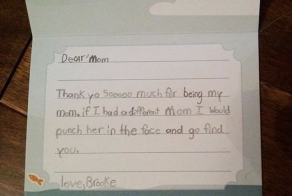 Dear Mom
Thank yo Soooooo much for being my
mom. if I had a different mom I would
punch her in the face and go find
you.
love, Brooke